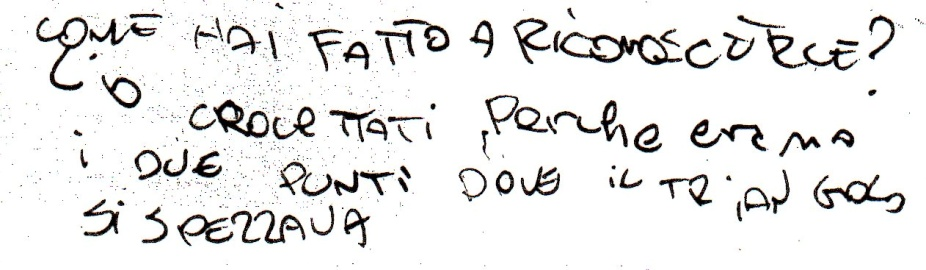 COME HAI FATTO A RICONOSCERLE?
Li ò CROCETTATI, Perche erano
i DUE PUNTI DOVE il TRIANGOLO
Si SPEZZAVA